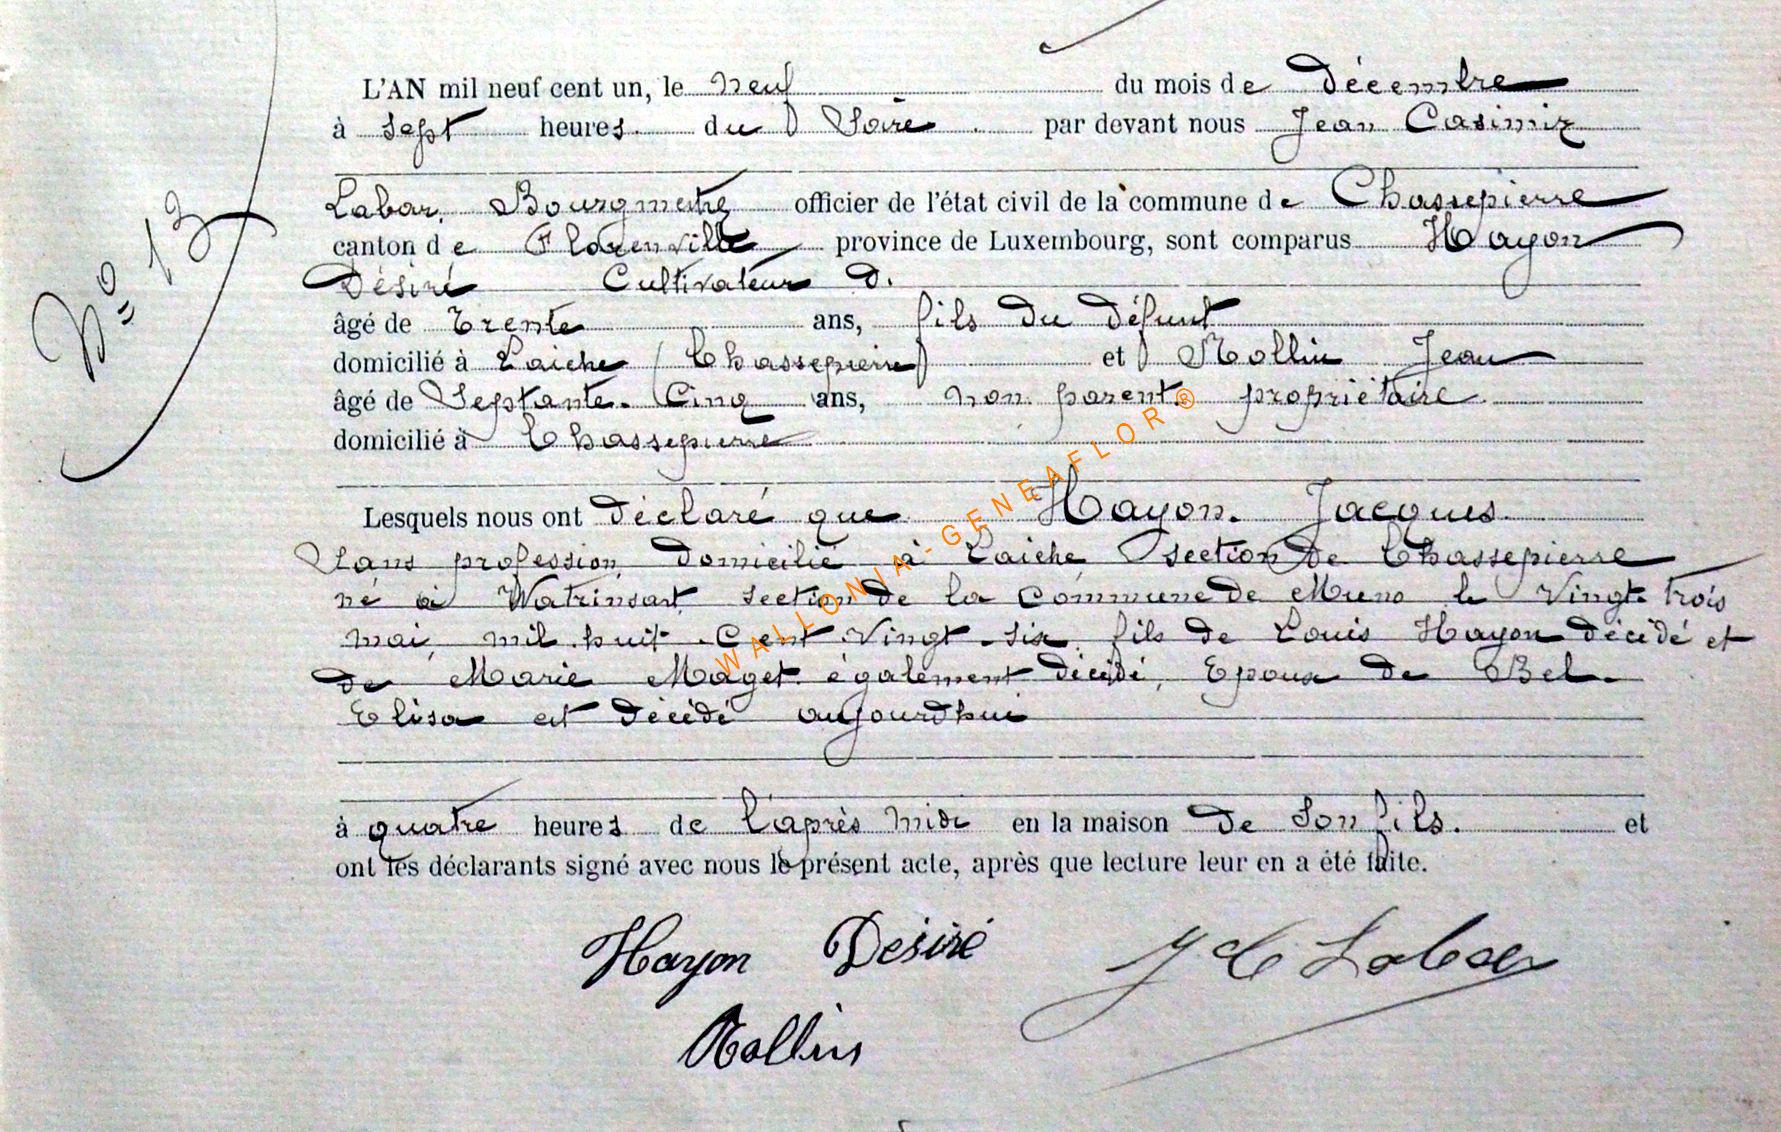 N° 13
L'AN mil neuf cent un, le neuf du mois de Décembre
à sept heures du Soire par devant nous Jean Casimir
Labar, Bourgmestre officier de l'état civil de la commune de Chassepierre
canton de Florenville province de Luxembourg, sont comparus Hayon
Désiré Cultivateur D.
âgé de trente ans, fils du défunt
domicilié à Laiche (Chassepierre) et Rollin Jean
âgé de Septante-Cinq ans, non parent propriétaire
domicilié à Chassepierre
Lesquels nous ont déclaré que Hayon. Jacques
Sans profession, domicilié à Laiche section De Chassepierre
né à Watrinsart, section De la Commune de Muno le Vingt-trois
mai, mil huit-Cent Vingt-six fils de Louis Hayon décédé et
de Marie Maget également décédé, Epoux de Bel.
Elisa est décédé aujourdhui
à quatre heures de l'après midi en la maison de son fils. et
ont les déclarants signé avec nous le présent acte, après que lecture leur en a été faite.
Hayon Desiré J C Labar
Rollin
WALLONIA-GENEAFLOR®